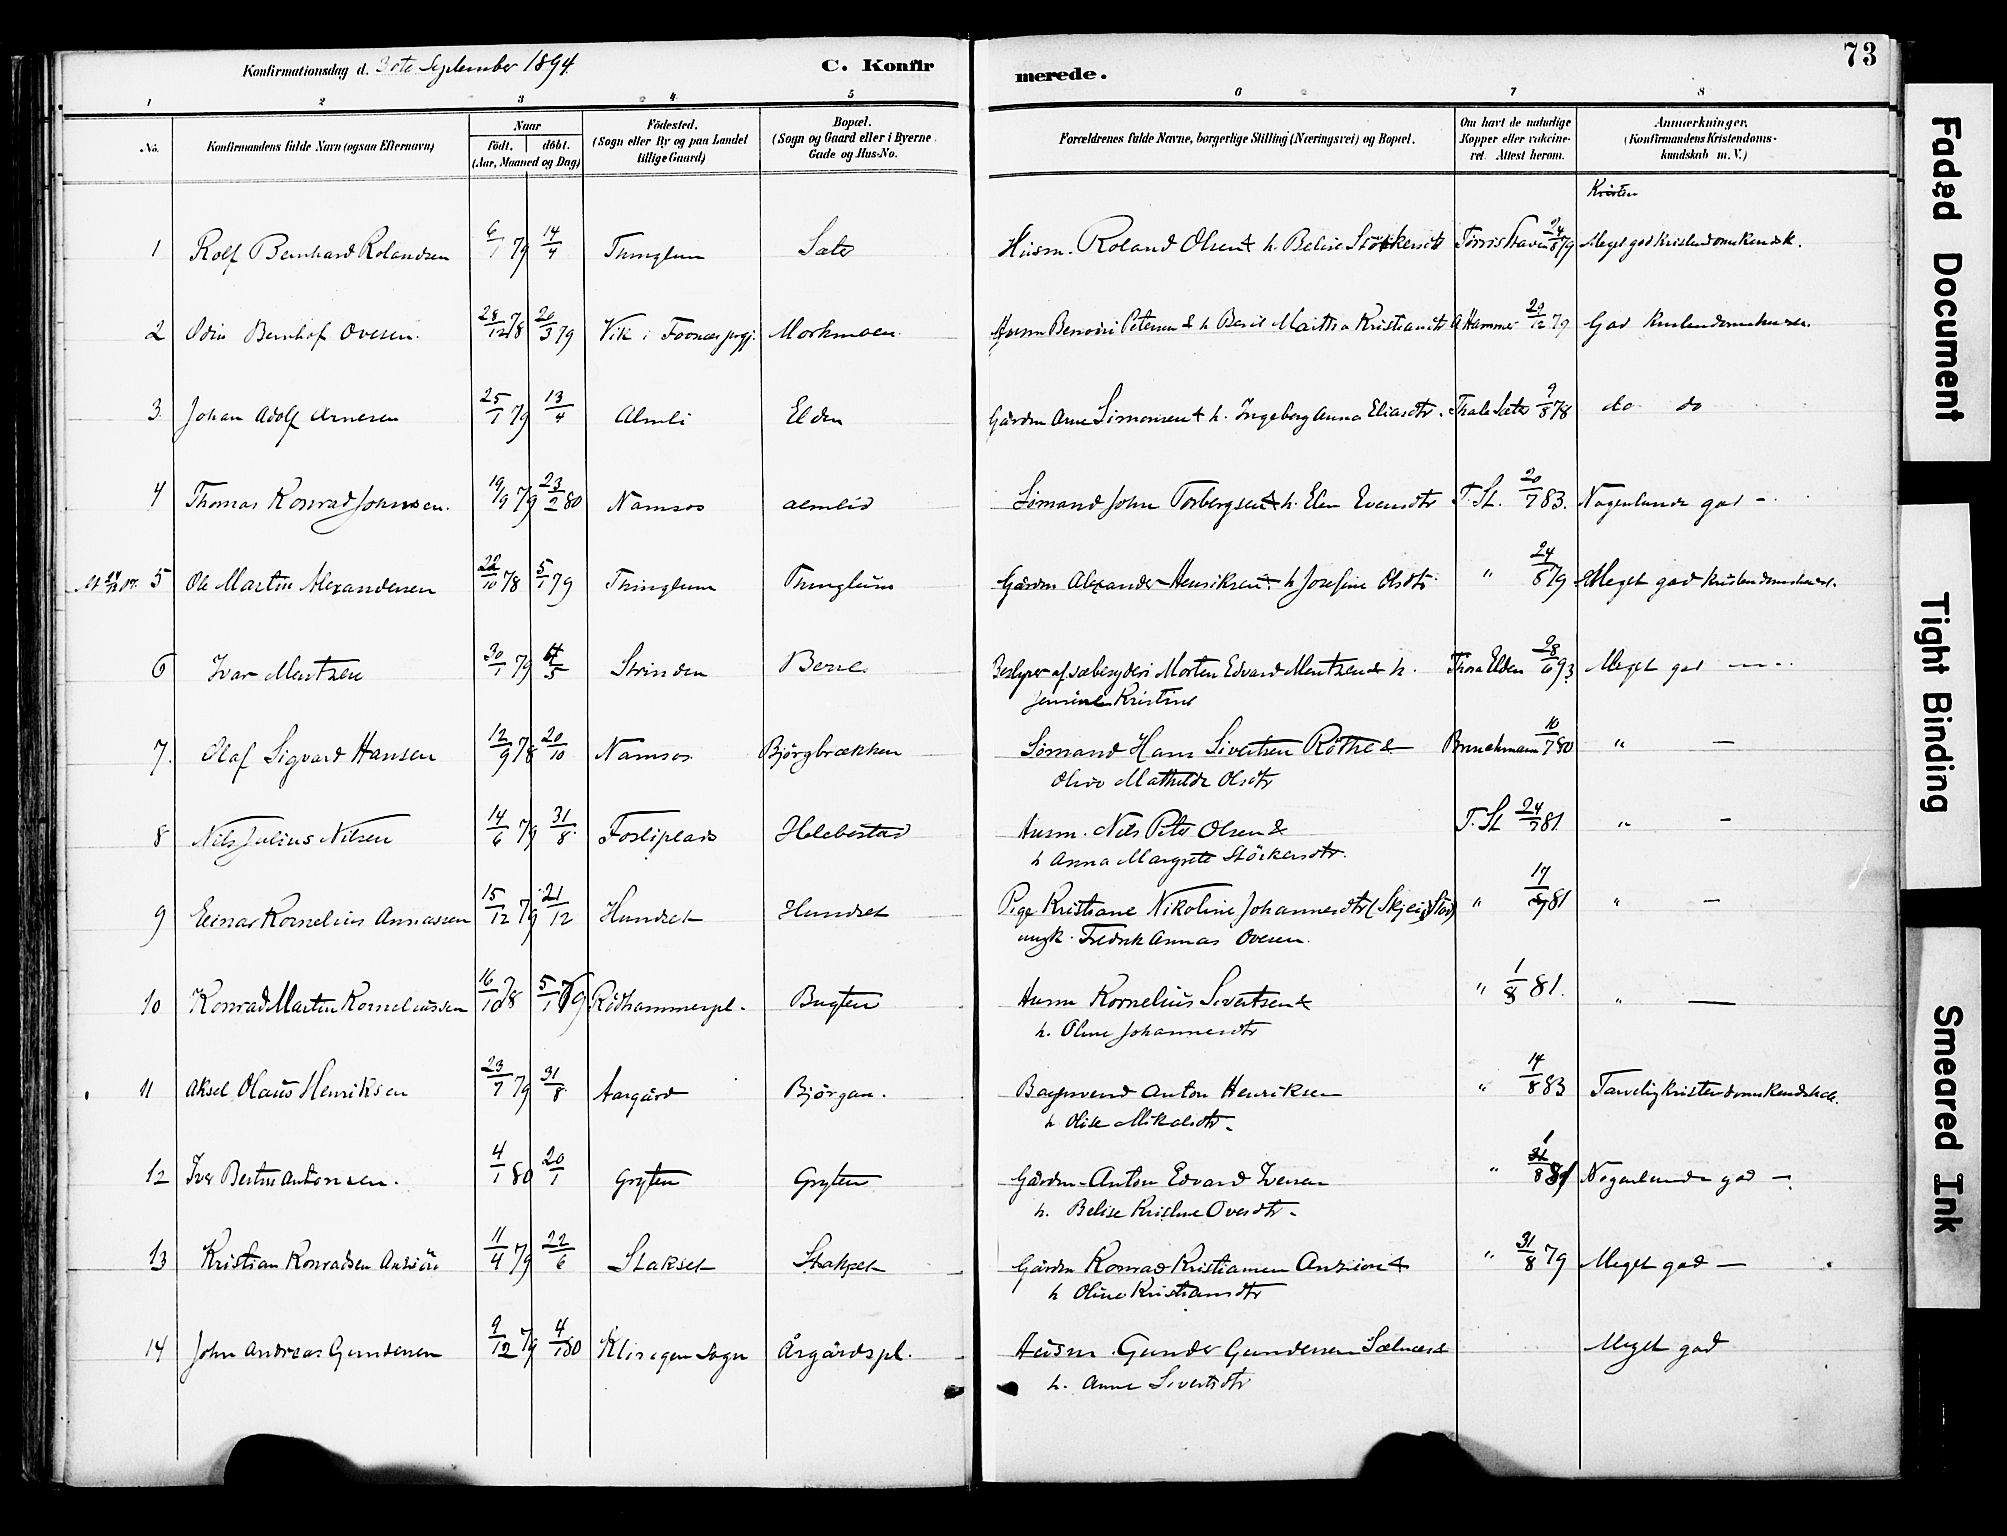 Konfirmationsdag d. 30te September 1894. C. Konfir
merede. 73
1 2 3 4 5 6 7 8
No. Konfirmandens fulde Navn (ogsaa Efternavn) Naar födt. döbt. (Aar, Maaned og Dag) Födested. (Sogn eller By og paa Landet tillige Gaard) Bopæl. (Sogn og Gaard eller i Byerne Gade og Hus-No. Forældrenes fulde Navne, borgerlige Stilling (Næringsvei) og Bopæl. Om havt de naturlige Kopper eller vakcineret. Attest herom. Anmærkninger. (Konfirmandens Kristendomskundskab m. V.)
Kristen
1 Rolf Bernhard Rolandsen 6/1 79 14/4 Thinglum Sæter Husm. Roland Olsen & h. Belise 24/6 79 Meget god kristendomskundsk.
2 Odin Bernhof Ovesen. 28/12 78 20/3 79 Vik i Morkmoen Husm Petersen & h A Hammer 20/12 79 God
3 Johan Adolf Arnesen 25/1 79 13/4 Almli Elden Gårdm Arne Simonsen & h. Ingeborg Anna Eliasdtr. Sæter 9/8 78 do do
4 Thomas Konrad Johnsen. 19/9 79 23/2 80 Namsos Almlid Sömand John Torbergsen & h. Elen Evensdtr T. St. 20/7 83. Nogenlunde god -
5 Ole Martin Alexandersen 22/10 78 5/1 79 Thinglum Thinglum Gårdm Alexander Henriksen & h Josefine Olsdtr. " 24/6 79 Meget god
6 Ivar Mentzen 30/1 79 4/5 Strinden Berre Bestyrer af Morten Edvard Mentzen & h. Thora Elden 28/6 93 Meget god -
Kristine
7. Olaf Sigvard Hansen 12/9 78 20/10 Namsos. Bjørgbrækken Sömand Hans Sivertsen Röthe & 10/7 80 " -
Mathilde Olsdtr
8 Nils Julius Nilsen 14/6 79 31/8. Fosliplads Helebostad Husm. Nils Peter Olsen & T. St 24/7 81 " -
h Anna Margrete Störkersdtr.
9 Einar Kornelius Annassen 15/12 79 21/12 Hundset Hundset Pige Kristiane Nikoline Johannesdtr " 17/ 81 " -
ungk. Fredrik Annas Ovesen.
10 Konrad Martin Korneliussen 16/10 78 5/1 79 Rödhammerpl. Bugten Husm Kornelius Sivertsen & " 1/8 81. " -
h. Oline Johannesdtr
11 Aksel Olaus Henriksen 23/7 79 31/8 Aargård Björgan. Anton Henriksen " 14/8 83 Tarvelig kristendomskundskab.
h. Olise Mikalsdtr.
12 Iver Bertin Antonsen. 4/1 80 20/1 Gryten Gryten Gårdm. Anton Edvard Iversen " 1/8 81 Nogenlunde god -
h. Belise Kristine Ovesdtr.
13 Kristian Konradsen 11/4 79 22/6 Stakset Stakset Gårdm Konrad Kristiansen & " 31/8 79 Meget god -
h Oline Kristiansdtr
14 John Andreas Gundersen 9/12 79 4/1 80 Klingen Sogn Årgårdspl. Husm. Gunder Gundersen Meget god
h. Anne Sivertsdtr
Faded Document
Tight Binding
Smeared Ink